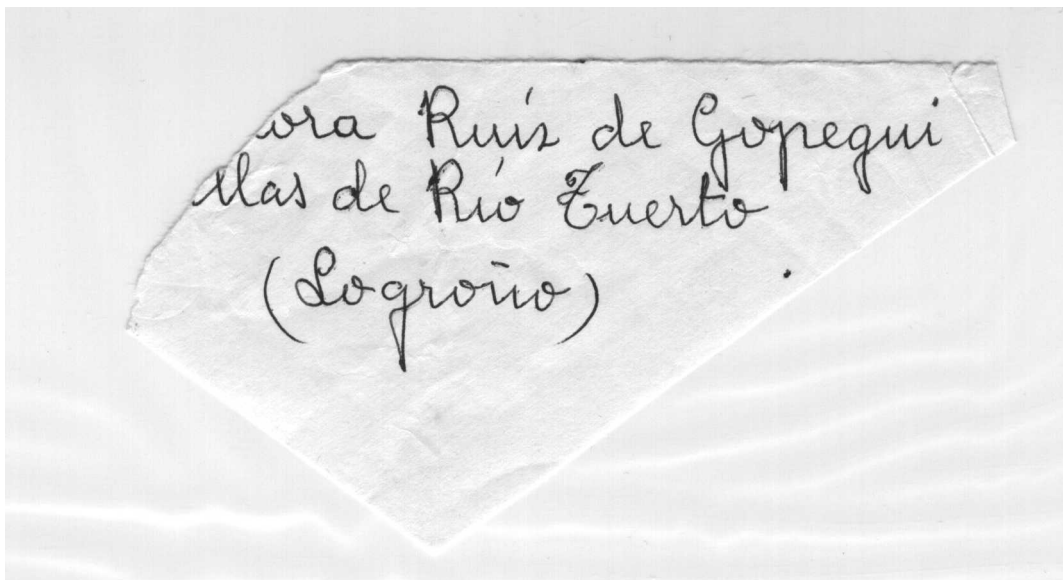 ora Ruíz de Gopegui
llas de Río Tuerto
(Logroño)